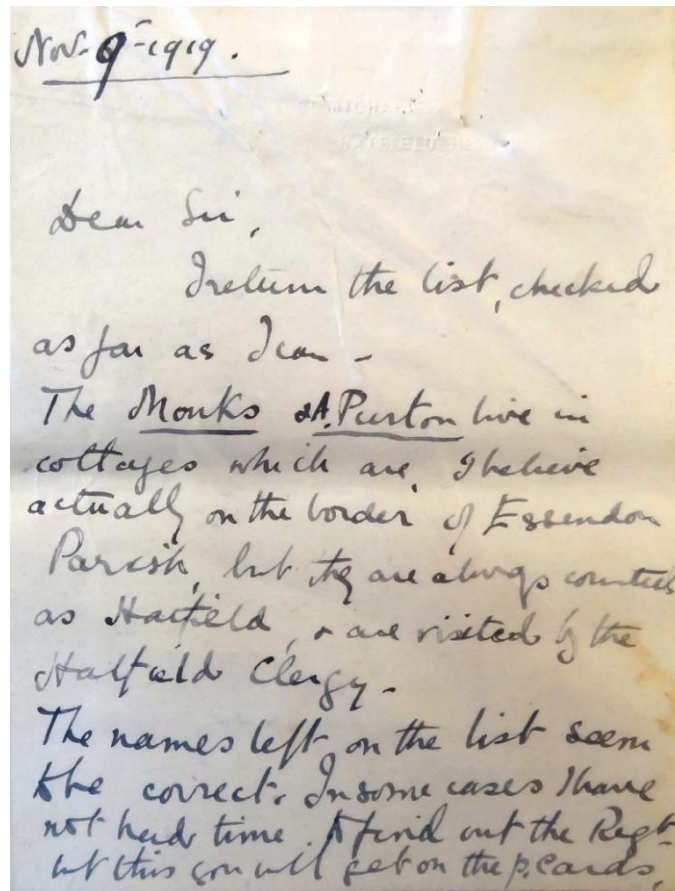 Nov. 9th-1919.
HATFIELD
Dear Sir,
I return the list, checked
as far as I can -
The Monks & A. Purton live in
cottages which are, I believe
actually on the border of Essendon
Parish, but they are always counted
as Hatfield, & are visited by the
Hatfield Clergy -
The names left on the list seem
to be correct. In some cases I have
not had time to find out the Regt -
but this you will get on the p. cards,